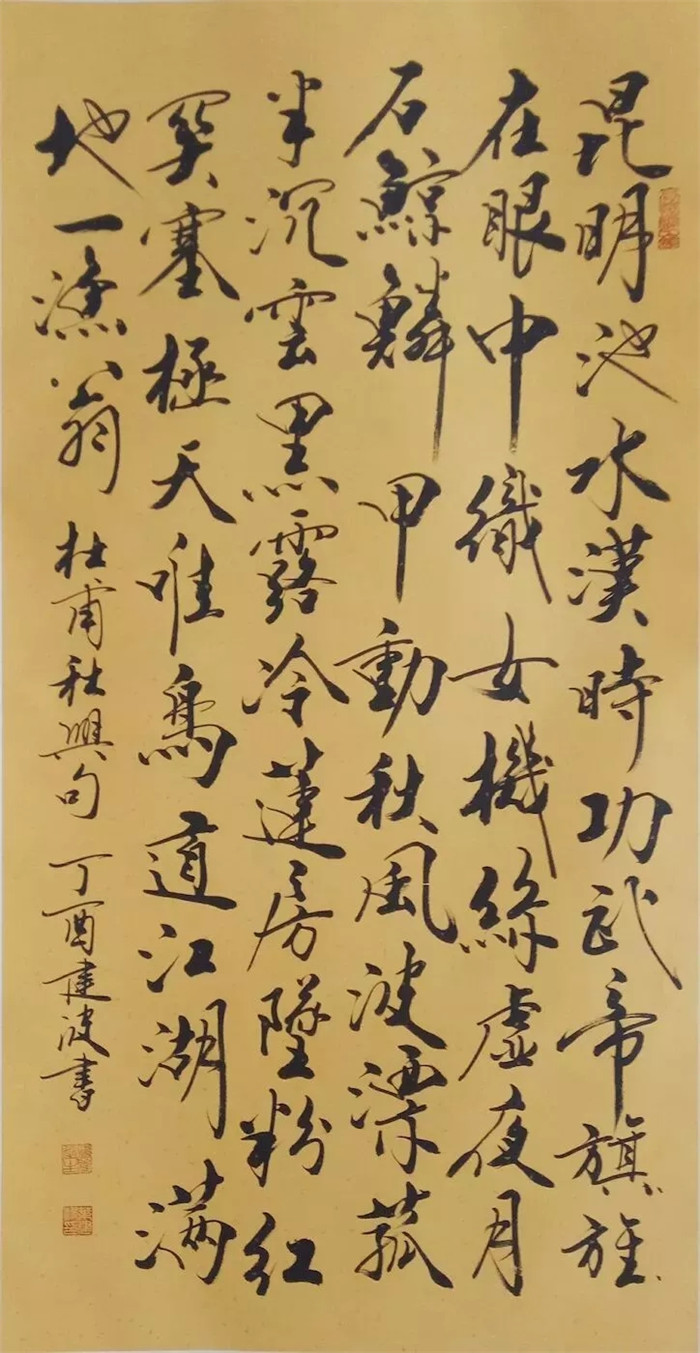 昆明池水漢時功武帝旗旌
在眼中織女機絲虛夜月
石鯨鱗甲動秋風波漂菰
米沉雲黑露冷蓮房墜粉紅
關塞極天唯鳥道江湖滿
地一漁翁 杜甫秋興句 丁酉建波書